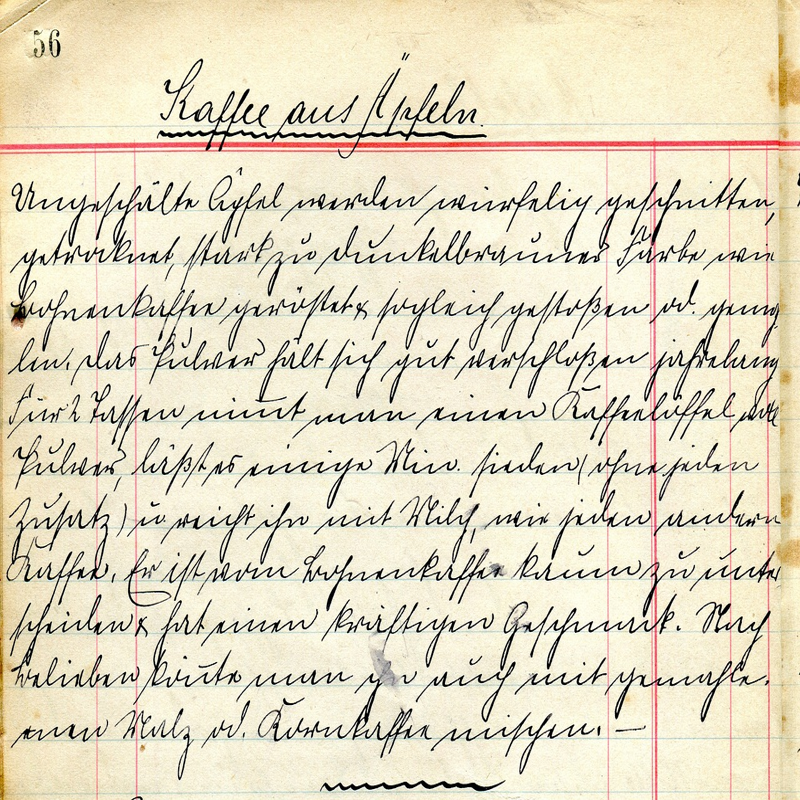 56
Kaffee aus Äpfeln.
Ungeschälte Äpfel werden würfelig geschnitten,
getrocknet, stark zu dunkelbrauner Farbe wie
Bohnenkaffee geröstet & sogleich gestoßen od. gemah
len. Das Pulver hält sich gut verschloßen jahrelang
Für 2 Tassen nimt man einen Kaffeelöffel voll
Pulver, läßt es einige Min. sieden (ohne jeden
Zusatz) u reicht ihn mit Milch, wie jeden andern
Kaffee. Er ist vom Bohnenkaffee kaum zu unter
scheiden & hat einen kräftigen Geschmack. Nach
Belieben könte man ihn auch mit gemahle-
enen Malz od. Kornkaffee mischen. —